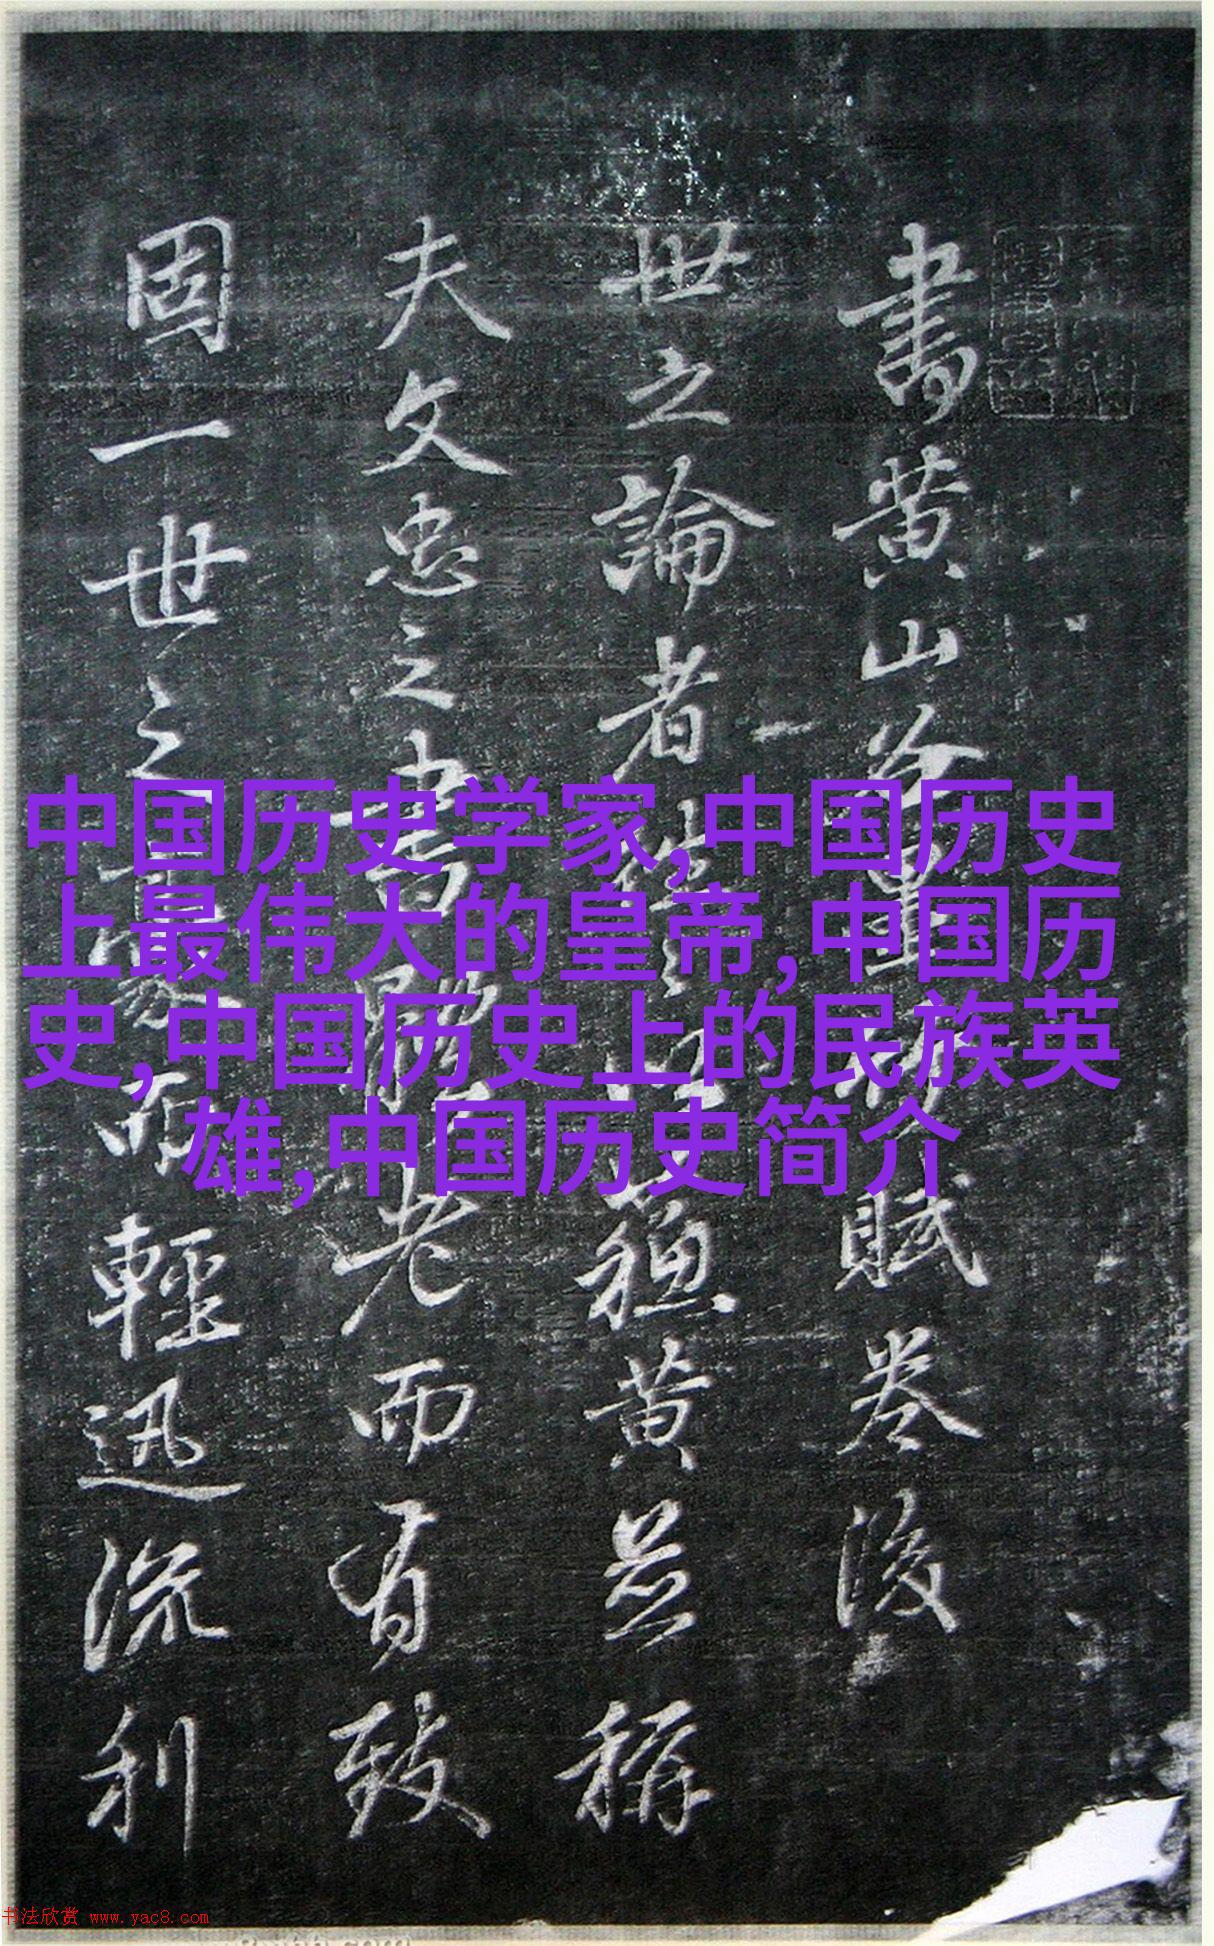 書黄山谷賦卷後
世之論者蘇黄並稱
夫文忠之書老而有致
固一世之而輕迅流利
中国历史学家,中国历史
上最伟大的皇帝,中国历
史,中国历史上的民族英
雄,中国历史简介
书法欣赏 www.yac8.com